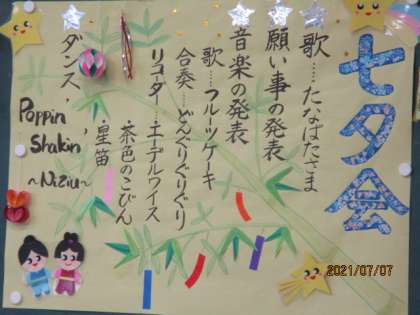 七夕会
歌……たなばたさま
願い事の発表
音楽の発表
歌……フルーツケーキ
合奏…どんぐりぐりぐり
リコーダー…エーデルワイス
・茶色のこびん
・星笛
ダンス、
Poppin'
Shakin'
～NiziU～
2021/07/07